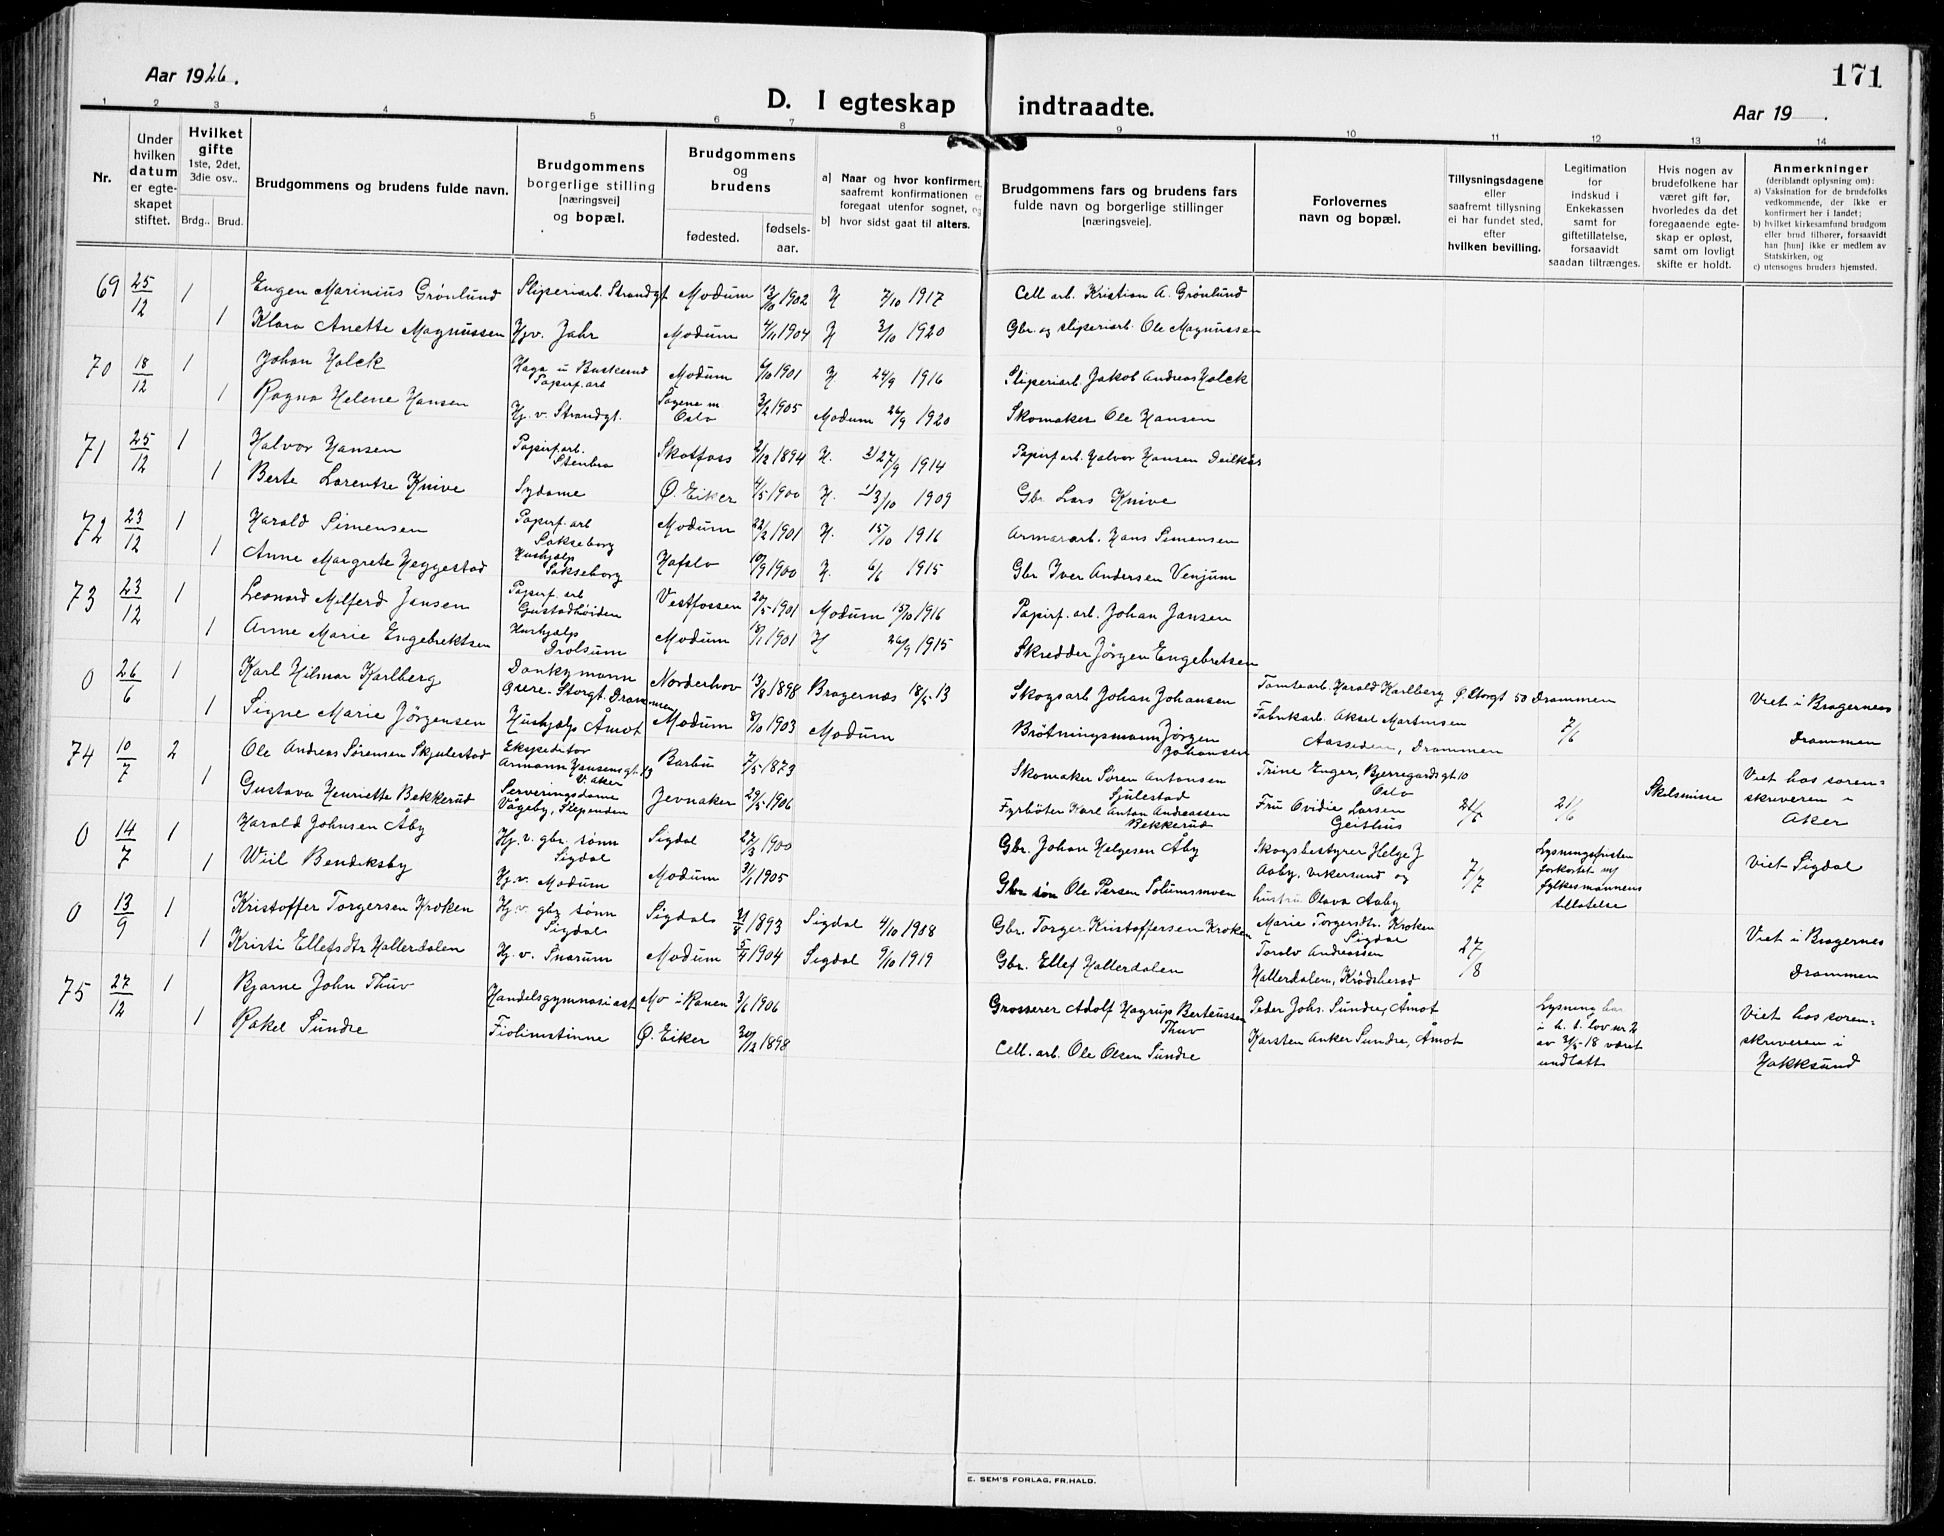 Aar 1926.
171
D. I egteskap indtraadte.
Aar 19 .
1 2 3 4 5 6 7 8 9 10 11 12 13 14
Nr.
Under hvilken datum er egteskapet stiftet.
Hvilket gifte 1ste, 2det, 3die osv..
Brdg.. Brud.
Brudgommens og brudens fulde navn.
Brudgommens borgerlige stilling [næringsvei] og bopæl.
Brudgommens og brudens
fødested.
fødselsaar.
a) Naar og hvor konfirmert, saafremt konfirmationen er foregaat utenfor sognet, og
b) hvor sidst gaat til alters.
Brudgommens fars og brudens fars fulde navn og borgerlige stillinger [næringsvei].
Forlovernes navn og bopæl.
Tillysningsdagene eller saafremt tillysning ei har fundet sted, efter hvilken bevilling.
Legitimation for indskud i Enkekassen samt for giftetillatelse, forsaavidt saadan tiltrænges.
Hvis nogen av brudefolkene har været gift før, hvorledes da det foregaaende egteskap er opløst, samt om lovligt skifte er holdt.
Anmerkninger (deriblandt oplysning om):
a) Vaksination for de brudefolks vedkommende, der ikke er konfirmert her i landet;
b) hvilket kirkesamfund brudgom eller brud tilhører, forsaavidt han [hun] ikke er medlem av Statskirken, og
c) utensogns bruders hjemsted.
69 25/12 1 Eugen Marinius Grønlund Sliperiarb. Strandgt Modum 13/10 1902 H 7/10 1917 Cell arb. Kristian A. Grønlund
1 Klara Anette Magnussen Hjv. Jahr Modum 4/11 1904 H 3/10 1920 Gbr. og sliperiarb. Ole Magnussen
70 18/12 1 Johan Holck Haga u Buskerud Papirf. arb Modum 6/10 1901 H 24/9 1916 Sliperiarb. Jakob Andreas Holck
1 Ragna Helene Hansen Hj. v. Strandgt. Sagene m Oslo 3/2 1905 Modum 26/9 1920 Skomaker Ole Hansen
71 25/12 1 Halvor Hansen Papirf. arb. Stenbro Skotfoss 2/12 1894 H. 27/9 1914 Papirf arb. Halvor Hansen Deilkås
1 Berte Lorentse Knive Sydame Ø. Eiker 4/5 1900 H. 3/10 1909 Gbr. Lars Knive
72 23/12 1 Harald Simensen Papirf. arb Sakseborg Modum 22/2 1901 H. 15/10 1916 Armararb. Hans Simensen
1 Anne Margrete Heggestad Hushjælp Sakseborg Hafslo 17/9 1900 H. 6/6 1915 Gbr Iver Andersen Venjum
73 23/12 1 Leonard Milferd Jansen Papirf. arb Gustadhøiden Vestfossen 20/5 1901 Modum 15/10 1916 Papirf. arb. Johan Jansen
1 Anne Marie Engebrektsen Hushjælp Drolsum Modum 18/1 1901 H 26/9 1915 Skredder Jørgen Engebretsen
0 26/6 1 Karl Hilmar Karlberg Donkymann Øvre-Storgt. Drammen Norderhov 13/8 1898 Bragernæs 18/5-13 Skogsarb Johan Johansen Tomtearb. Harald Karlberg Ø Storgt 50 Drammen Viet i Bragernæs
1 Signe Marie Jørgensen Hushjælp Åmot Modum 8/10 1903 Modum Brøtningsmann Jørgen Johansen Fabrikarb. Aksel Martinsen Aasseden, Drammen 7/6 Drammen
74 10/7 2 Ole Andreas Sørensen Skjulestad Ekspeditør Armann Hansensgt. 13 V. Aker Barbu 7/5 1873 Skomaker Søren Antonsen Sjulestad Trine Enger, Bjerregårdsgt 10 Oslo Skilsmisse Viet hos soren-
1 Gustava Henriette Bekkerud Serveringsdame Vågeby, Slependen Jevnaker 29/5 1906 Fyrbøter Karl Anton Andreassen Bekkerud Fru Ovidie Larsen Geithus 21/6 21/6 skriveren i Aker
0 14/7 1 Harald Johnsen Åby Hj. v. gbr. sønn Sigdal Sigdal 27/3 1900 Gbr. Johan Helgesen Åby Skogsbestyrer Helge J Aaby, Vikersund og 7/7 Lysningsfristen forkortet m/ Viet Sigdal
1 Wiil Bendiksby Hj. v. Modum Modum 31/1 1905 Gbr søn Ole Persen Solumsmoen hustru Olava Aaby fylkesmannens tillatelse
0 13/9 1 Kristoffer Torgersen Kroken Hj. v. gbr sønn Sigdal Sigdal 21/8 1893 Sigdal 4/10 1908 Gbr. Torger Kristoffersen Kroken Marie Torgersdtr. Kroken Sigdal 27/8 Viet i Bragernes
1 Kristi Ellefsdtr Hallerdalen Hj. v. Snarum Modum 5/4 1904 Sigdal 9/10 1919 Gbr. Ellef Hallerdalen Torolv Andreassen Hallerdalen, Krødsherad Drammen
75 27/12 1 Bjarne John Thuv Handelsgymnasiast Mo i Ranen 3/6 1906 Grosserer Adolf Hagrup Berteussen Thuv Peder Johs. Sundre, Åmot Lysning har i h. t. lov nr. 2 Viet hos soren-
1 Rakel Sundre Fiolinistinne Ø. Eiker 30/12 1898 Cell. arb. Ole Olsen Sundre Karsten Anker Sundre, Åmot av 31/5-18 været undlatt skriveren i Hokksund
E. SEM'S FORLAG, FR.HALD.